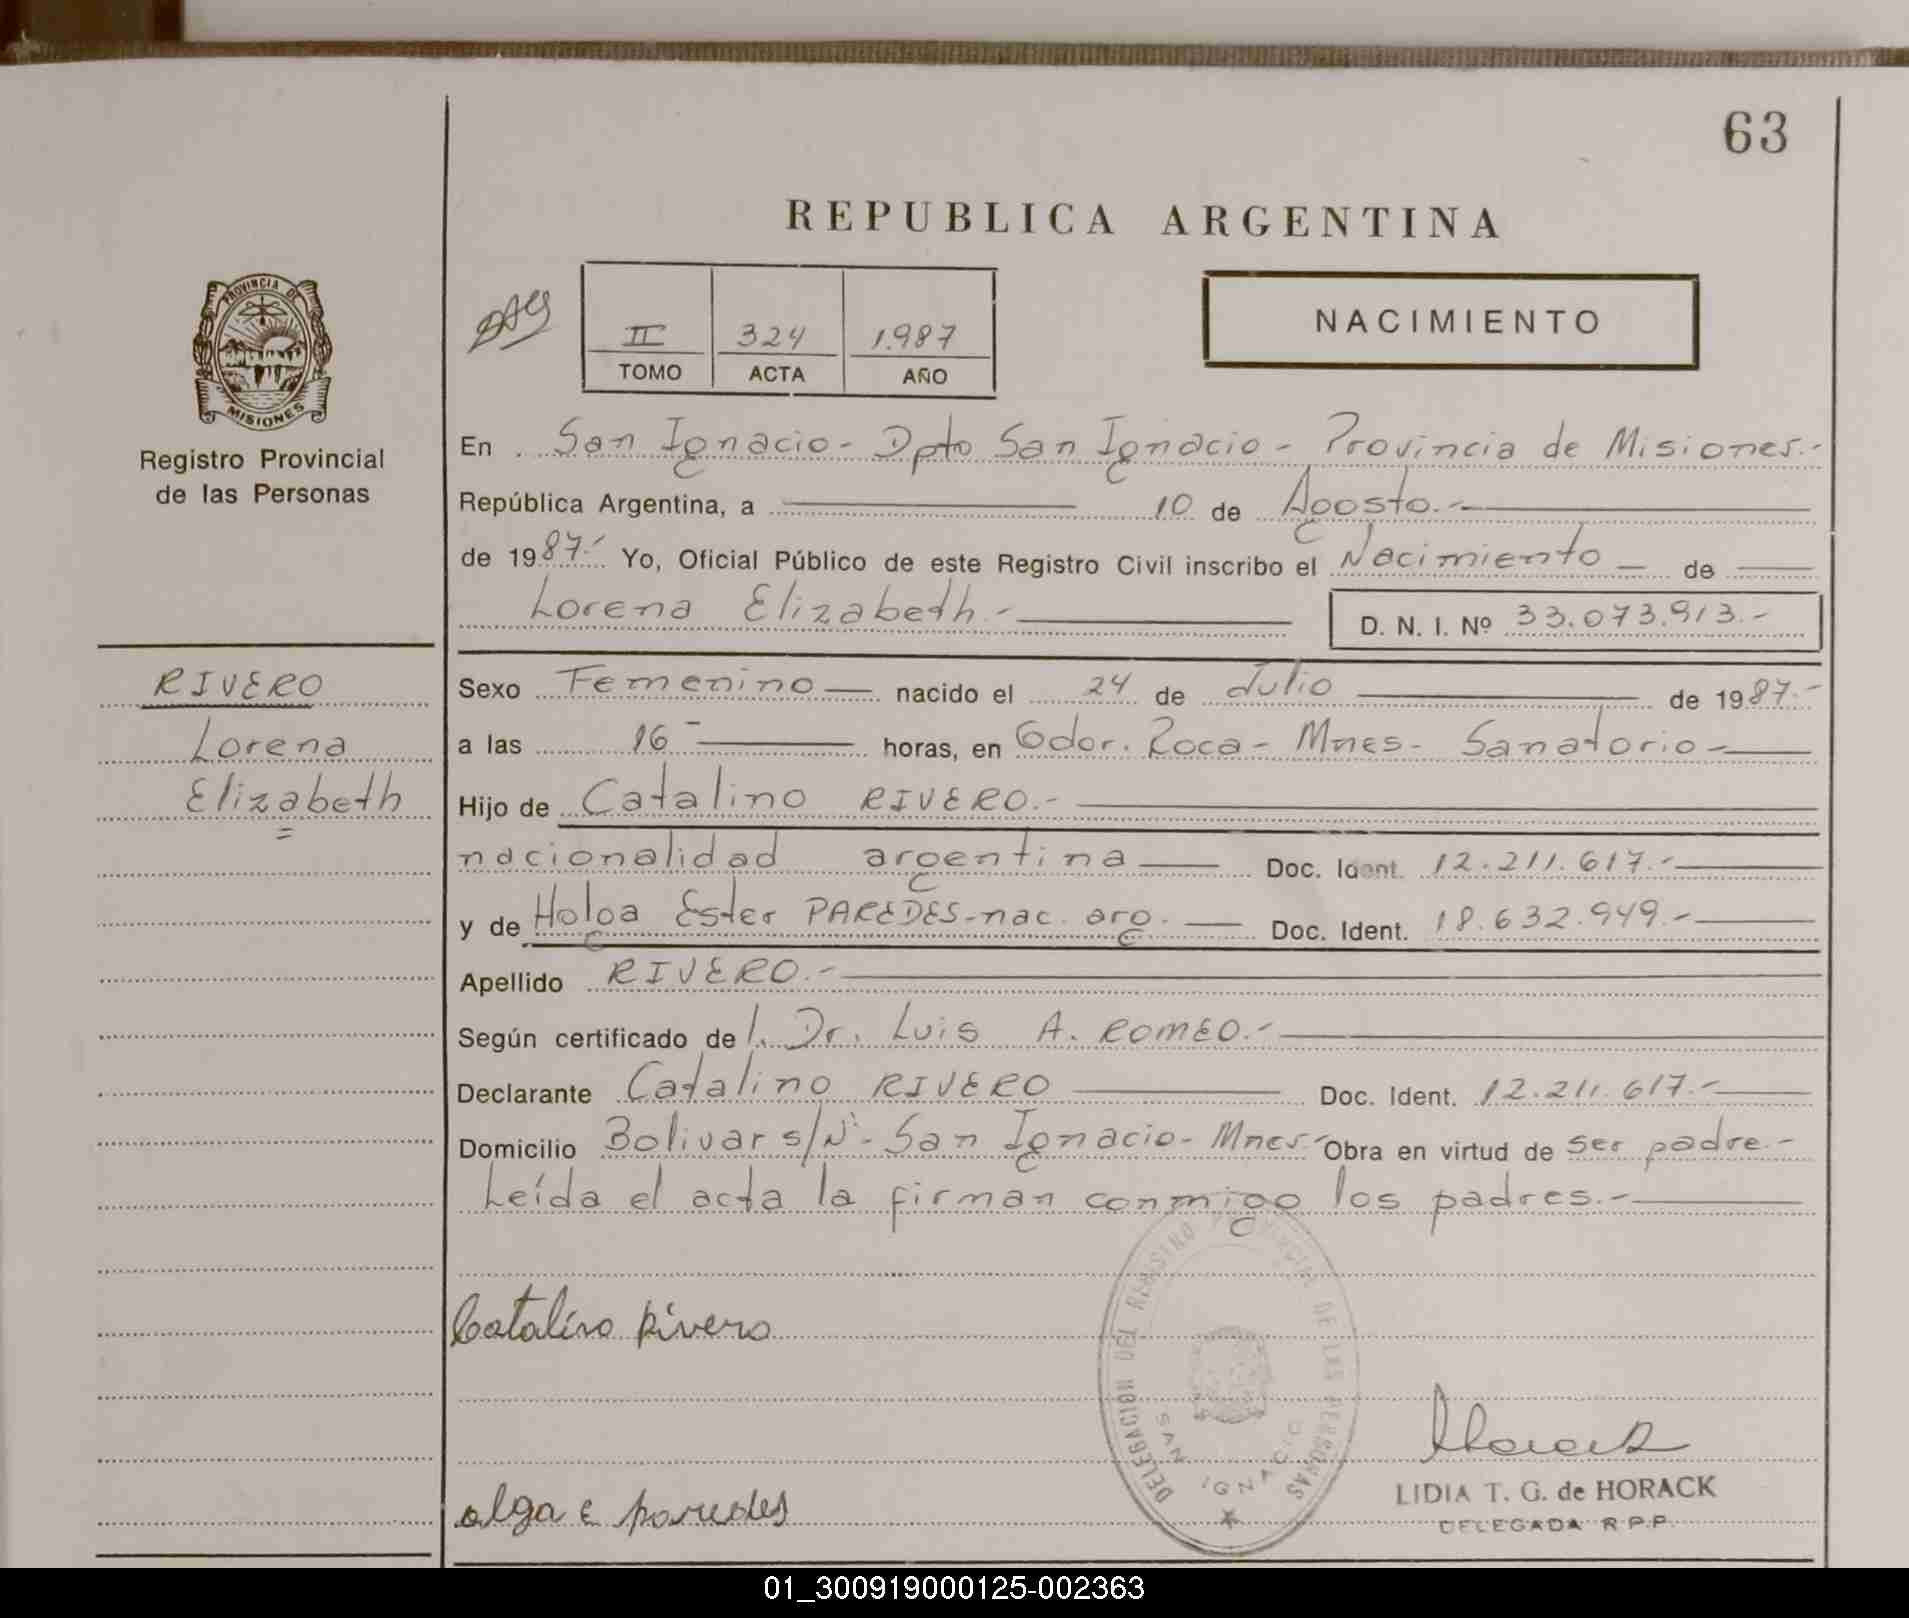 63
REPUBLICA ARGENTINA
PROVINCIA DE
MISIONES
Registro Provincial
de las Personas
II 324 1.987
TOMO ACTA AÑO
NACIMIENTO
En San Ignacio - Dpto San Ignacio - Provincia de Misiones.-
República Argentina, a 10 de Agosto.-
de 1987.- Yo, Oficial Público de este Registro Civil inscribo el Nacimiento de
Lorena Elizabeth.- D. N. I. Nº 33.073.913.-
RIVERO
Lorena
Elizabeth
Sexo Femenino nacido el 24 de Julio de 1987.-
a las 16 horas, en Gdor. Roca - Mnes - Sanatorio -
Hijo de Catalino RIVERO.-
nacionalidad argentina Doc. Ident. 12.211.617.-
y de Holga Ester PAREDES - nac. arg. Doc. Ident. 18.632.949.-
Apellido RIVERO.-
Según certificado de l. Dr. Luis A. ROMEO.-
Declarante Catalino RIVERO Doc. Ident. 12.211.617.-
Domicilio Bolivar s/Nº - San Ignacio - Mnes - Obra en virtud de ser padre.-
Leída el acta la firman conmigo los padres.-
Catalino Rivero
DELEGACION DEL REGISTRO PROVINCIAL DE LAS PERSONAS
SAN IGNACIO
LIDIA T. G. de HORACK
DELEGADA R.P.P.
olga e paredes
01_300919000125-002363